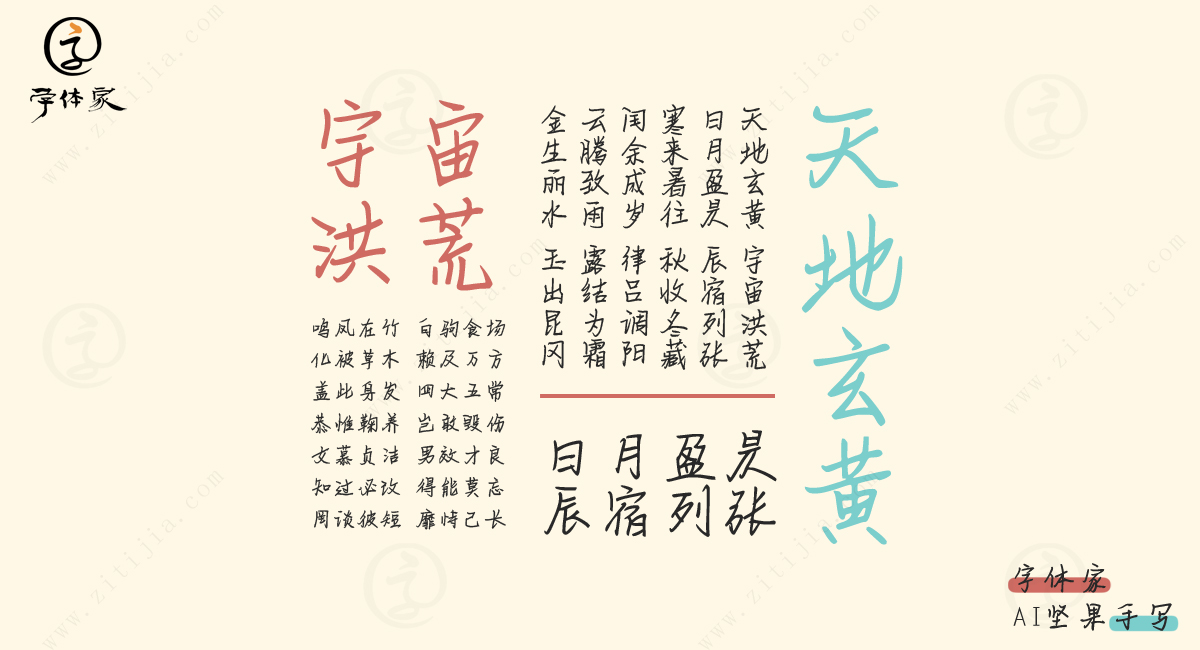 字体家
天地玄黄
宇宙
洪荒
天地玄黄 宇宙洪荒
日月盈昃 辰宿列张
寒来暑往 秋收冬藏
闰余成岁 律吕调阳
云腾致雨 露结为霜
金生丽水 玉出昆冈
日月盈昃
辰宿列张
鸣凤在竹 白驹食场
化被草木 赖及万方
盖此身发 四大五常
恭惟鞠养 岂敢毁伤
女慕贞洁 男效才良
知过必改 得能莫忘
罔谈彼短 靡恃己长
字体家
AI坚果手写
www.zitijia.com